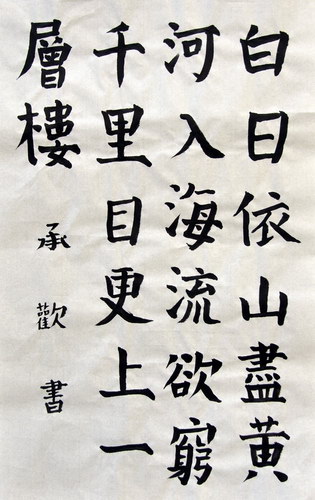 白日依山盡黄
河入海流欲窮
千里目更上一
層樓
承歡書